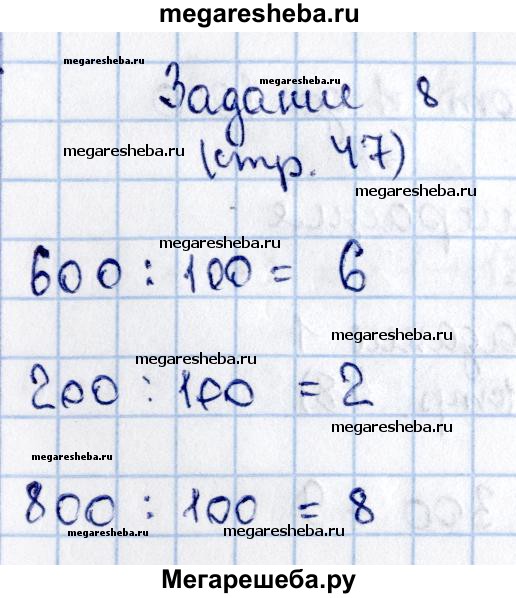 megaresheba.ru
megaresheba.ru
megaresheba.ru
Задание 8
megaresheba.ru
(стр. 47)
megaresheba.ru
megaresheba.ru
600 : 100 = 6
megaresheba.ru
megaresheba.ru
200 : 100 = 2
megaresheba.ru
megaresheba.ru
800 : 100 = 8
megaresheba.ru
megaresheba.ru
Мегарешеба.ру